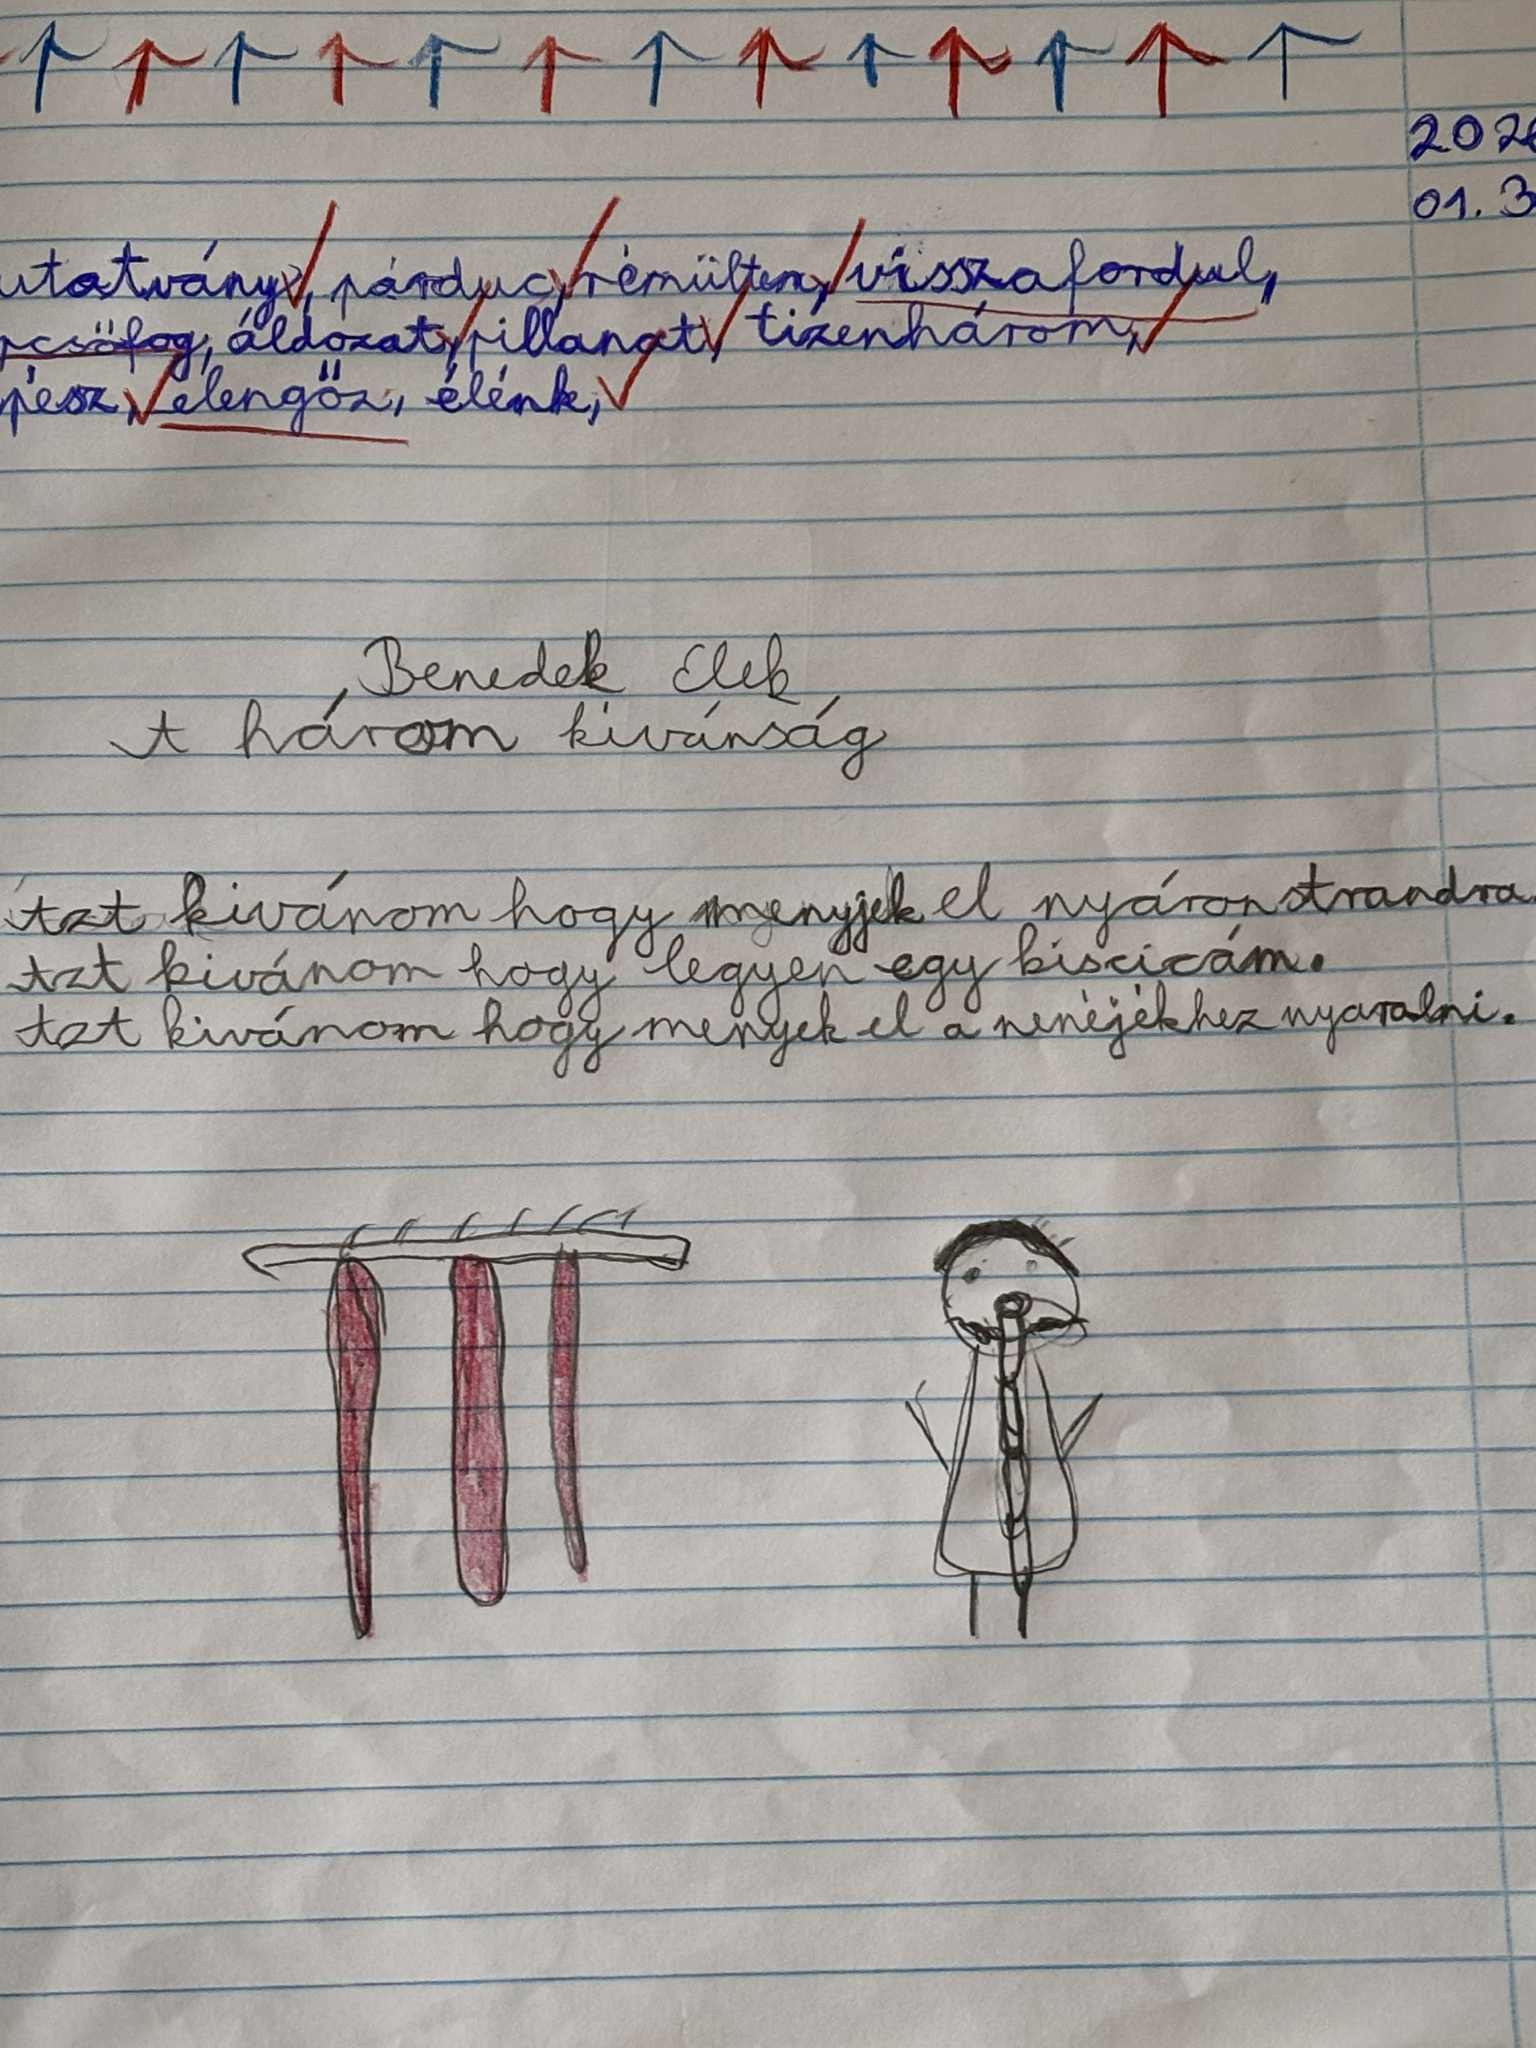 202
01.3
utatvány, párduc, rémülten, visszafordul,
pcsőfog, áldozat, pillanat, tizenhárom,
pész, elengőz, élénk,
Benedek Elek
A három kivánság
Azt kivánom hogy menyjek el nyáron strandra.
Azt kivánom hogy legyen egy kiscicám.
Azt kivánom hogy menyek el a nenéjékhez nyaralni.